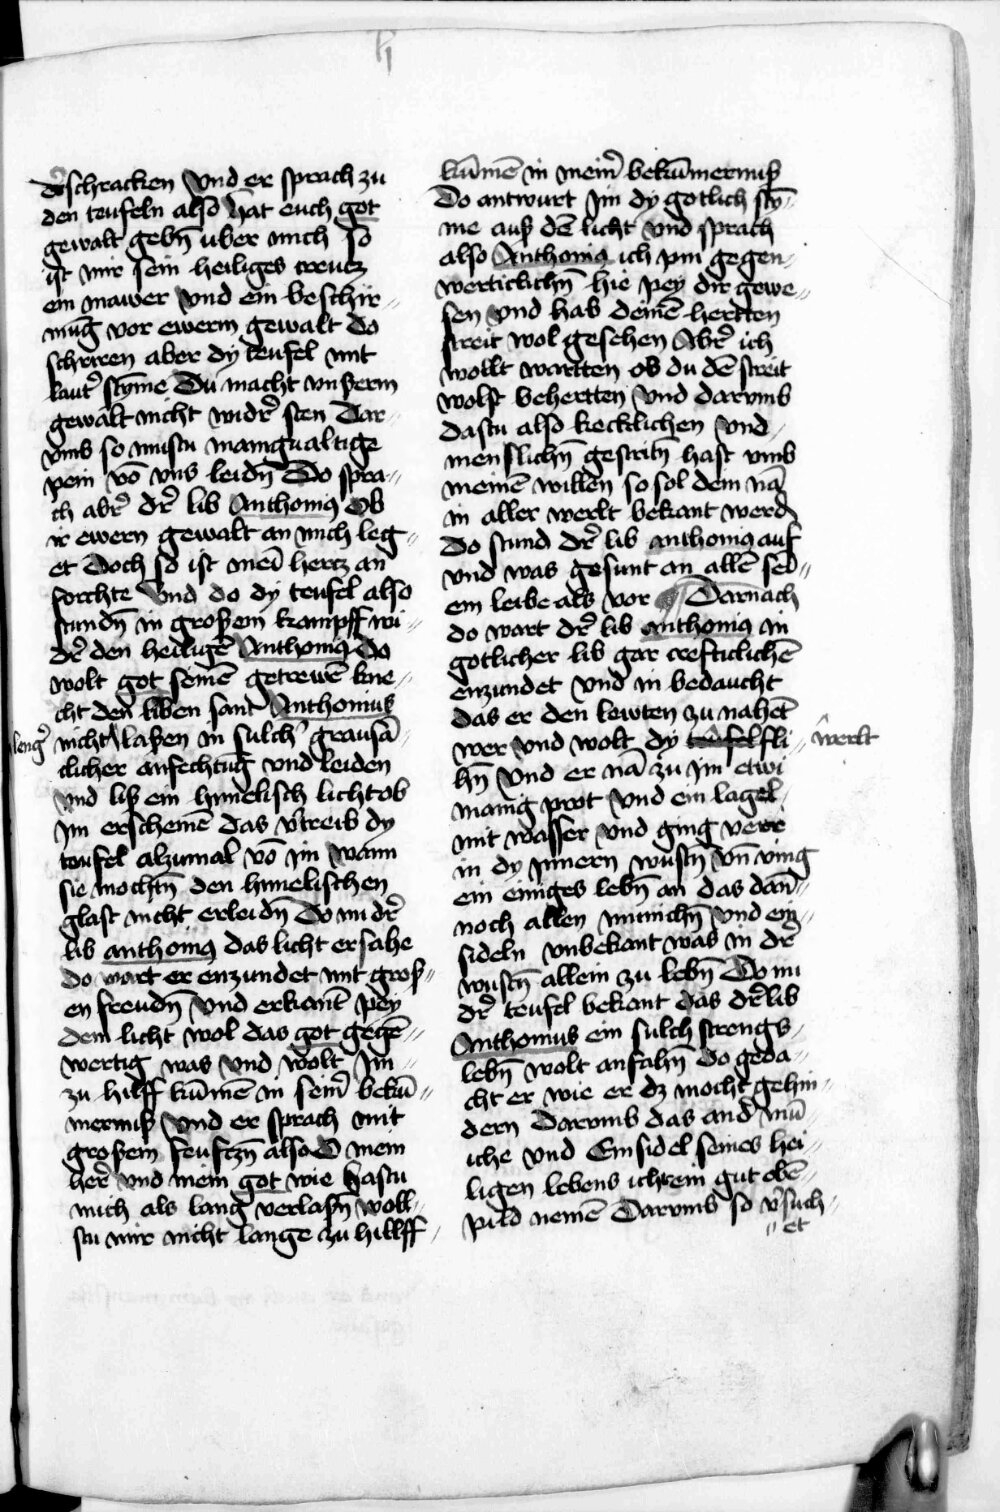 derschracken Vnd er sprach zu
den teufeln also hat euch got
gewalt gebn̄ uber mich so
ist mir sein heiliges creucz
ein mawer vnd ein beschir„
mūg vor ewerm gewalt Do
schriren aber dy teufel mit
laut᷑ stȳme Du macht vnßerm
gewalt nicht wid᷑ sten Dar„
vmb so mustu manigualtige
pein vō vns leidn̄ Do spra„
ch ab᷑ d᷑ lib Anthoniꝰ Ob
ir ewern gewalt an mich leg„
et Doch so ist mei᷑ hercz an
forchte Vnd do dy teufel also
stundn̄ in großem kampff wi„
d᷑ den heiligē Anthoniꝰ Do
wolt got seinē getrewē kne„
cht den liben sant Anthonius
leng᷑
nicht laßen in sulch᷑ grausā„
clicher anfechtūg vnd leiden
vnd liß ein himelisch licht ob
Im erscheinē das v᷑treib dy
teufel alzumal vō im wann
sie mochtn̄ den himelischen
glast nicht erleidn̄ Do nu d᷑
lib anthoniꝰ das licht ersahe
do wart er enzundet mit groß„
en freudn̄ Vnd erkant pey
dem licht wol das got gegē„
wertig was vnd wolt Im„
zu hilff kūmē in sein᷑ bekū„
mernuß Vnd er sprach mit
großem seufczn̄ also O mein
her᷑ vnd mein got wie hastu
mich als lang verlaßn̄ woll„
stu mir nicht lange zu hillff„
kūmē in mein᷑ bekūmernuß
Do antwurt Im dy gotlich stȳ„
me auß dē licht vnd sprach
also Anthoniꝰ ich pin gegen„
werticlichn̄ hie pey dir gewe„
sen vnd hab deinē hertten
streit wol gesehen Ab᷑ ich
wollt wartten ob du dē streit
wolst behertten Vnd darvmb
dastu also kecklichen vnd„
menslichn̄ gestritn̄ hast vmb
meinē willen so sol dein nā
in aller werlt bekant werd
Do stund d᷑ lib anthoniꝰ auf
vnd was gesunt an allē sei„
em leibe als vor Darnach
do wart d᷑ lib anthoniꝰ in
gotlicher lib gar crefticlichē
enzundet Vnd in bedaucht
das er den lewten zu nahēt
wer vnd wolt dy teufel fli„
werlt
hn̄ Vnd er nā zu im etwi
manig prot Vnd ein lagel
mit wasser vnd ging verr
in dy innern wustn̄ vn̄ ving
ein einiges lebn̄ an das dān„
noch allen munichn̄ vnd ein„
sideln vnbekant was in d᷑
wustn̄ allein zu lebn̄ Do nu
d᷑ teufel bekant das d᷑ lib
Anthonius ein sulch strengs„
lebn̄ wolt anfahn̄ do geda„
cht er wie er dz mocht gehin„
dern Darvmb das and᷑ mū„
iche vnd Einsidel seines hei„
ligen lebens ichtein gut ebē„
pild nemē Darvmb so v᷑such„
„et